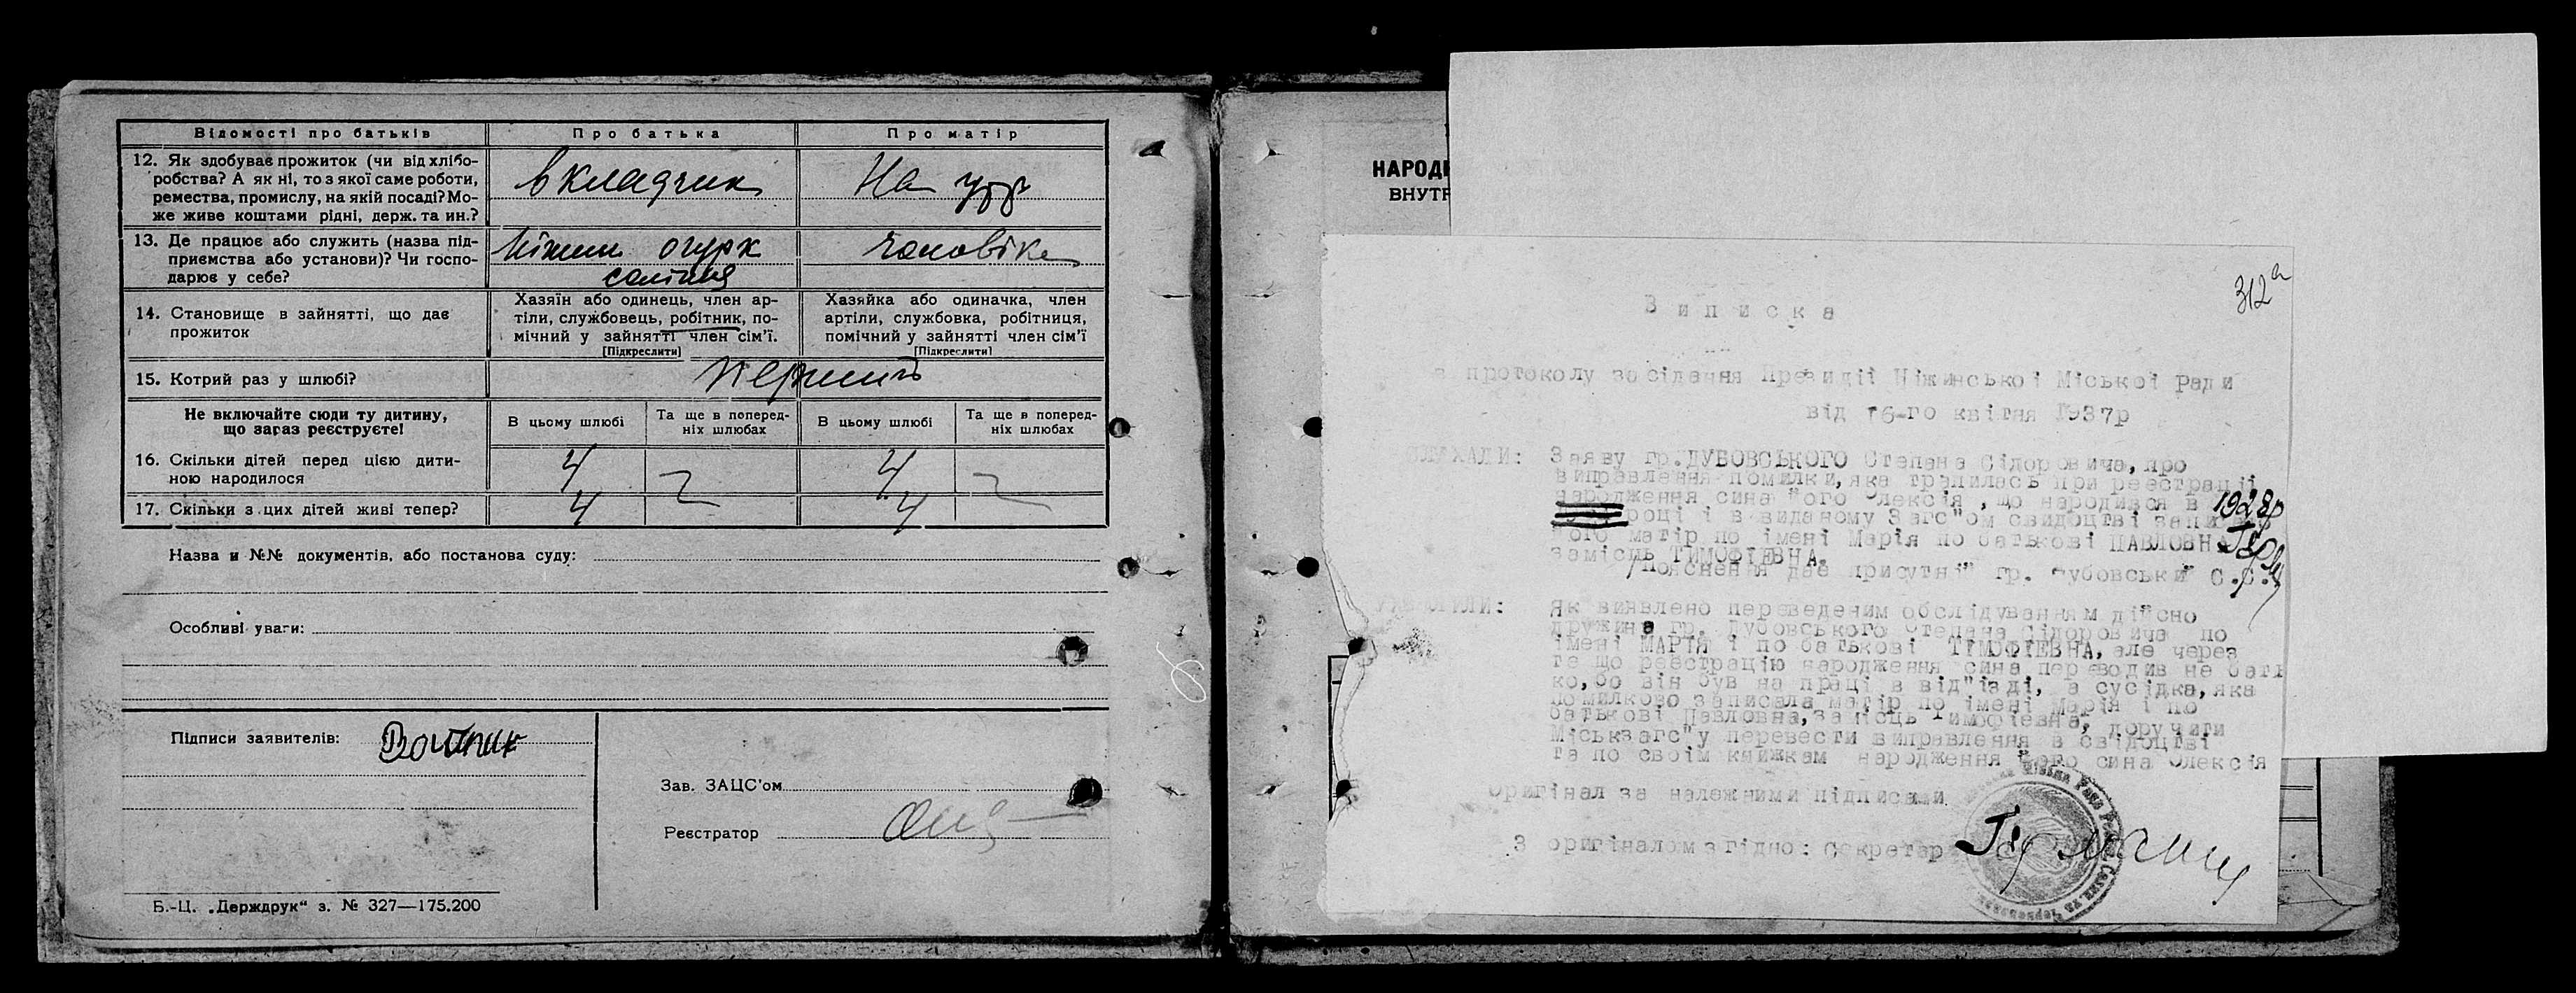 Відомості про батьків
Про батька
Про матір
12. Як здобуває прожиток (чи від хлібо-
робства? А як ні, то з якої саме роботи,
ремества, промислу, на якій посаді? Мо-
же живе коштами рідні, держ. та ин.?
вкладчик
На утр
13. Де працює або служить (назва під-
приємства або установи)? Чи госпо-
дарює у себе?
Ніжин огурк
соління
чоловіка
14. Становище в зайнятті, що дає
прожиток
Хазяїн або одинець, член ар-
тілі, службовець, робітник, по-
мічний у зайнятті член сім'ї.
[Підкреслити]
Хазяйка або одиначка, член
артілі, службовка, робітниця,
помічний у зайнятті член сім'ї
[Підкреслити]
15. Котрий раз у шлюбі?
Не включайте сюди ту дитину,
що зараз реєструєте!
В цьому шлюбі
Та ще в поперед-
ніх шлюбах
В цьому шлюбі
Та ще в поперед-
ніх шлюбах
16. Скільки дітей перед цією дити-
ною народилося
4
4
17. Скільки з цих дітей живі тепер?
4
4
Назва и №№ документів, або постанова суду:
Особливі уваги:
Підписи заявителів:
Зав. ЗАЦС'ом
Реєстратор
Б.-Ц. „Держдрук" з. № 327—175.200
НАРОД
ВНУТР
312а
Виписка
з протоколу засідання Президії Ніжинської Міської Ради
від 16-го квітня 1937р
СЛУХАЛИ: Заяву гр.ДУБОВСЬКОГО Степана Сідоровича, про
виправлення помилки, яка трапилась при реєстрації
народження сина його Олексія, що народився в 1928р
році і в виданому Загс"ом свидоцтві
його матір по імені Марія по батькові ПАВЛОВНА
замісць ТИМОФІЕВНА.
/Пояснення дає присутні" гр. Дубовськи" С.С./
УХВАЛИЛИ: Як виявлено переведеним обслідуванням ді"сно
дружина гр. Дубовського Степана Сідоровича по
імені МАРІЯ і по батькові ТІМОФІЕВНА, але через
те що реєстрацію народження сина переводив не бать
ко, бо він був на праці в від"їзді, а сусідка, яка
помилково записала матір по імені Марія і по
батькові Павловна, замісць Тимофіевна, доручити
Міськзагс"у перевести виправлення в свідоцтві
та по своїм книжкам народження його сина Олексія
Оригінал за належними підписами
З оригіналом згідно: Секретар